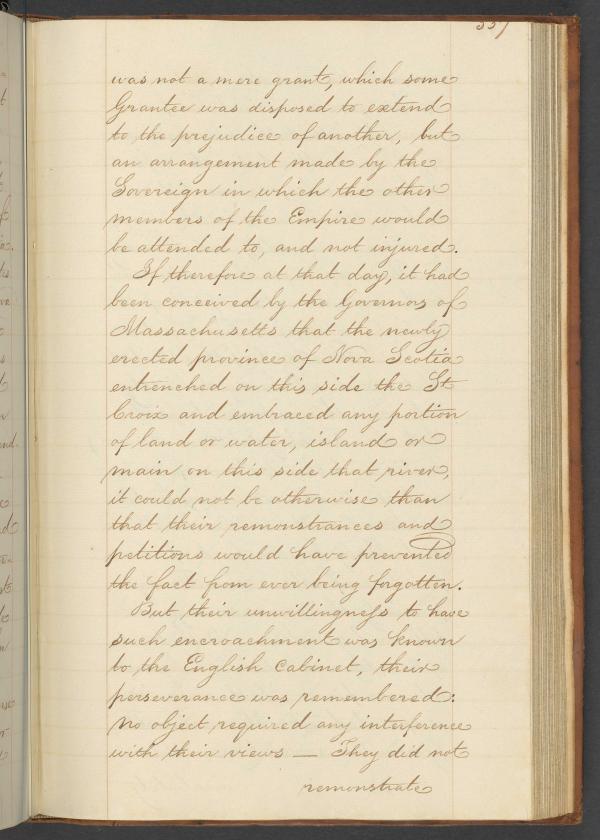 was not a mere grant, which some
Grantee was disposed to extend
to the prejudice of another, but
an arrangement made by the
Sovereign in which the other
members of the Empire would
be attended to, and not injured.
If therefore at that day, it had
been conceived by the Governors of
Massachusetts that the newly
erected province of Nova Scotia
entrenched on this side the St
Croix and embraced any portion
of land or water, island or
main on this side that river,
it could not be otherwise than
that their remonstrances and
petitions would have prevented
the fact from ever being forgotten.
But their unwillingness to have
such encroachment was known
to the English Cabinet, their
perseverance was remembered:
No object required any interference
with their views — They did not
remonstrate